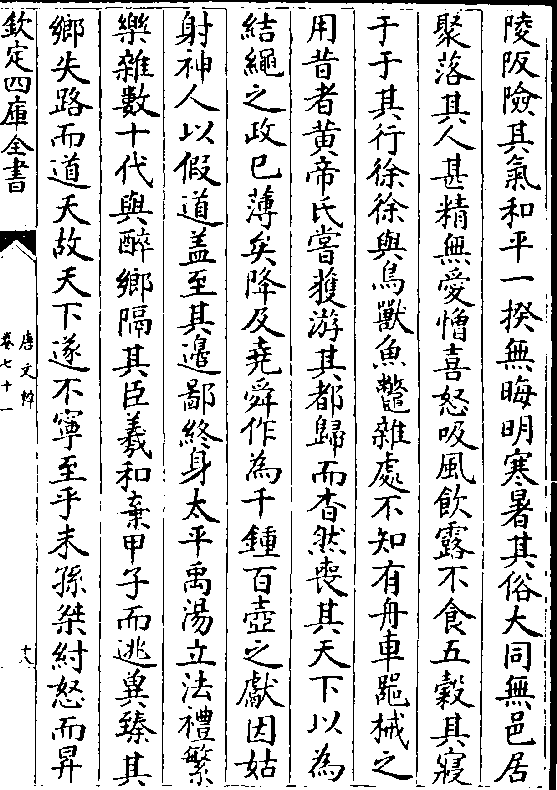 陵阪險其氣和平一揆無晦明寒暑其俗大同無邑居
聚落其人甚精無愛憎喜怒吸風飲露不食五穀其寢
于于其行徐徐與鳥獸魚鼈雜處不知有舟車噐械之
用昔者黄帝氏嘗獲游其都歸而杳然喪其天下以為
結繩之政已薄矣降及堯舜作為千鍾百壺之獻因姑
射神人以假道盖至其邉鄙終身太平禹湯立法禮繁
樂雜數十代與醉鄉隔其臣羲和棄甲子而逃冀臻其
鄉失路而道夭故天下遂不寧至乎末孫桀紂怒而昇
欽定四庫全書
唐文粹
卷七十一
十八